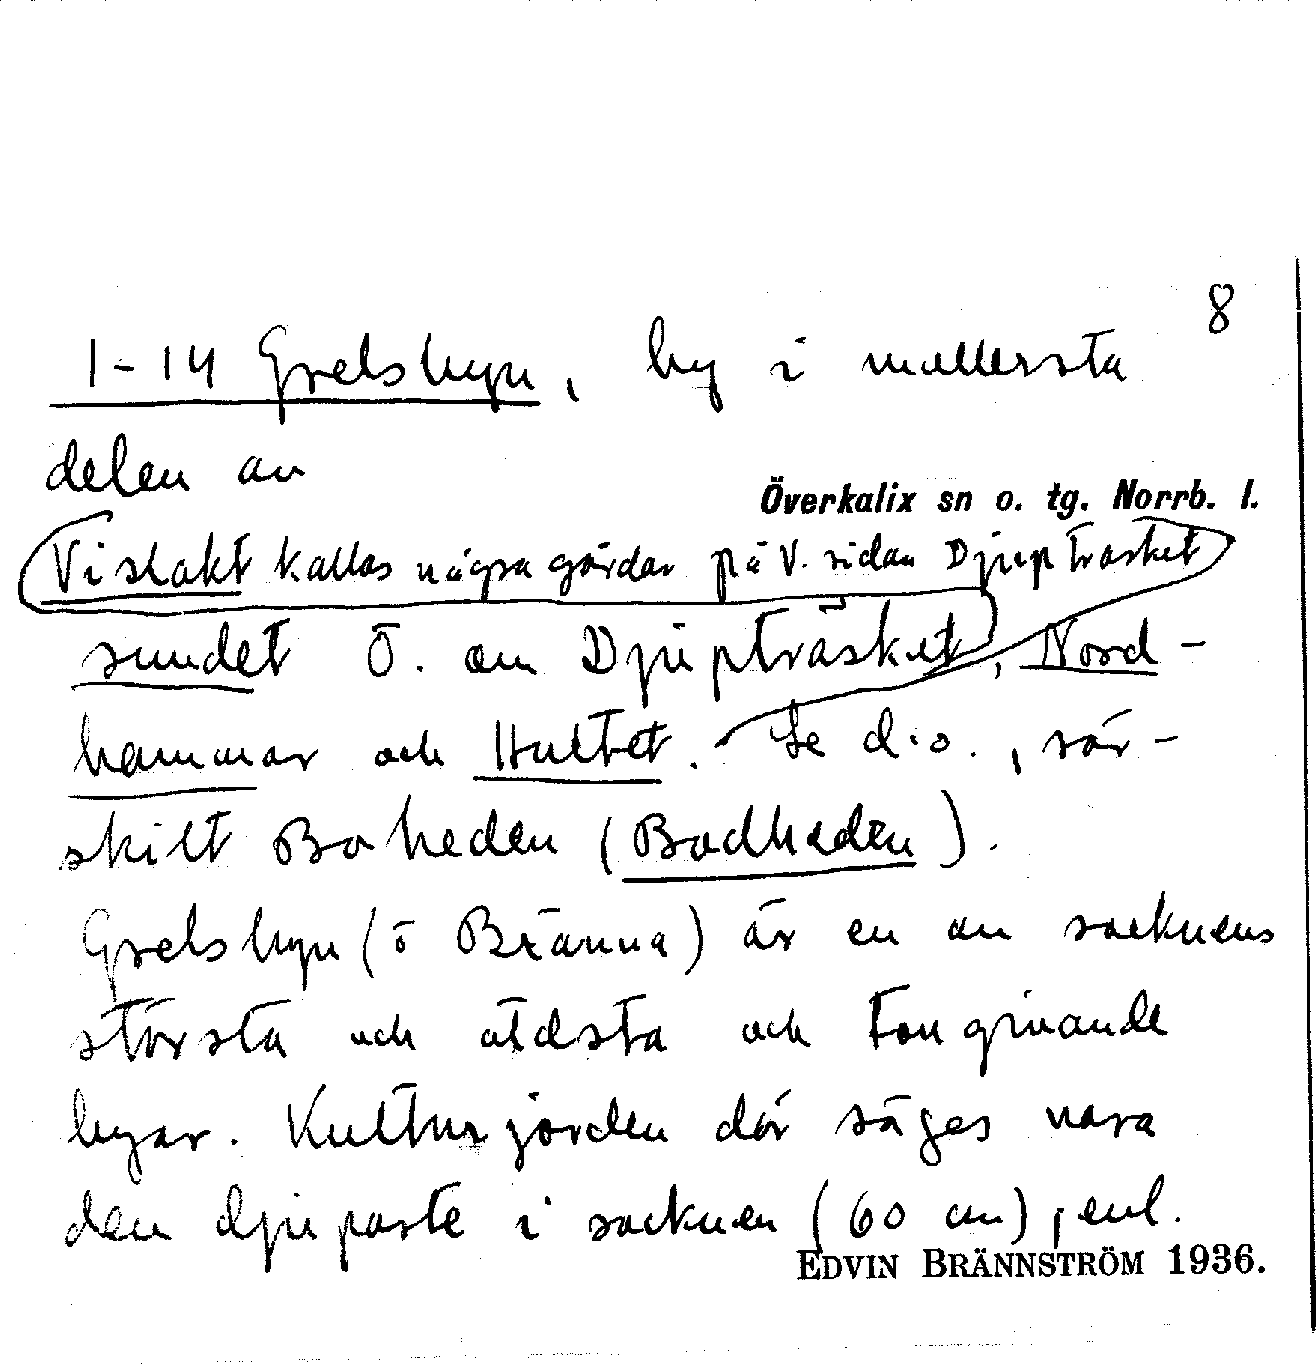 8
1-14 Grelsbyn, by i mellersta
delen av
Överkalix sn o. tg. Norrb. l.
Vistakt kallas några gårdar på V. sidan Djupträsket
sundet Ö. om Djupträsket, Nord-
hammar och Hultet. Se d.o., sär-
skilt Boheden (Bodheden).
Grelsbyn (o Bränna) är en av socknens
största och äldsta och tongivande
byar. Kulturjorden där säges vara
den djupaste i socknen (60 cm), enl.
EDVIN BRÄNNSTRÖM 1936.